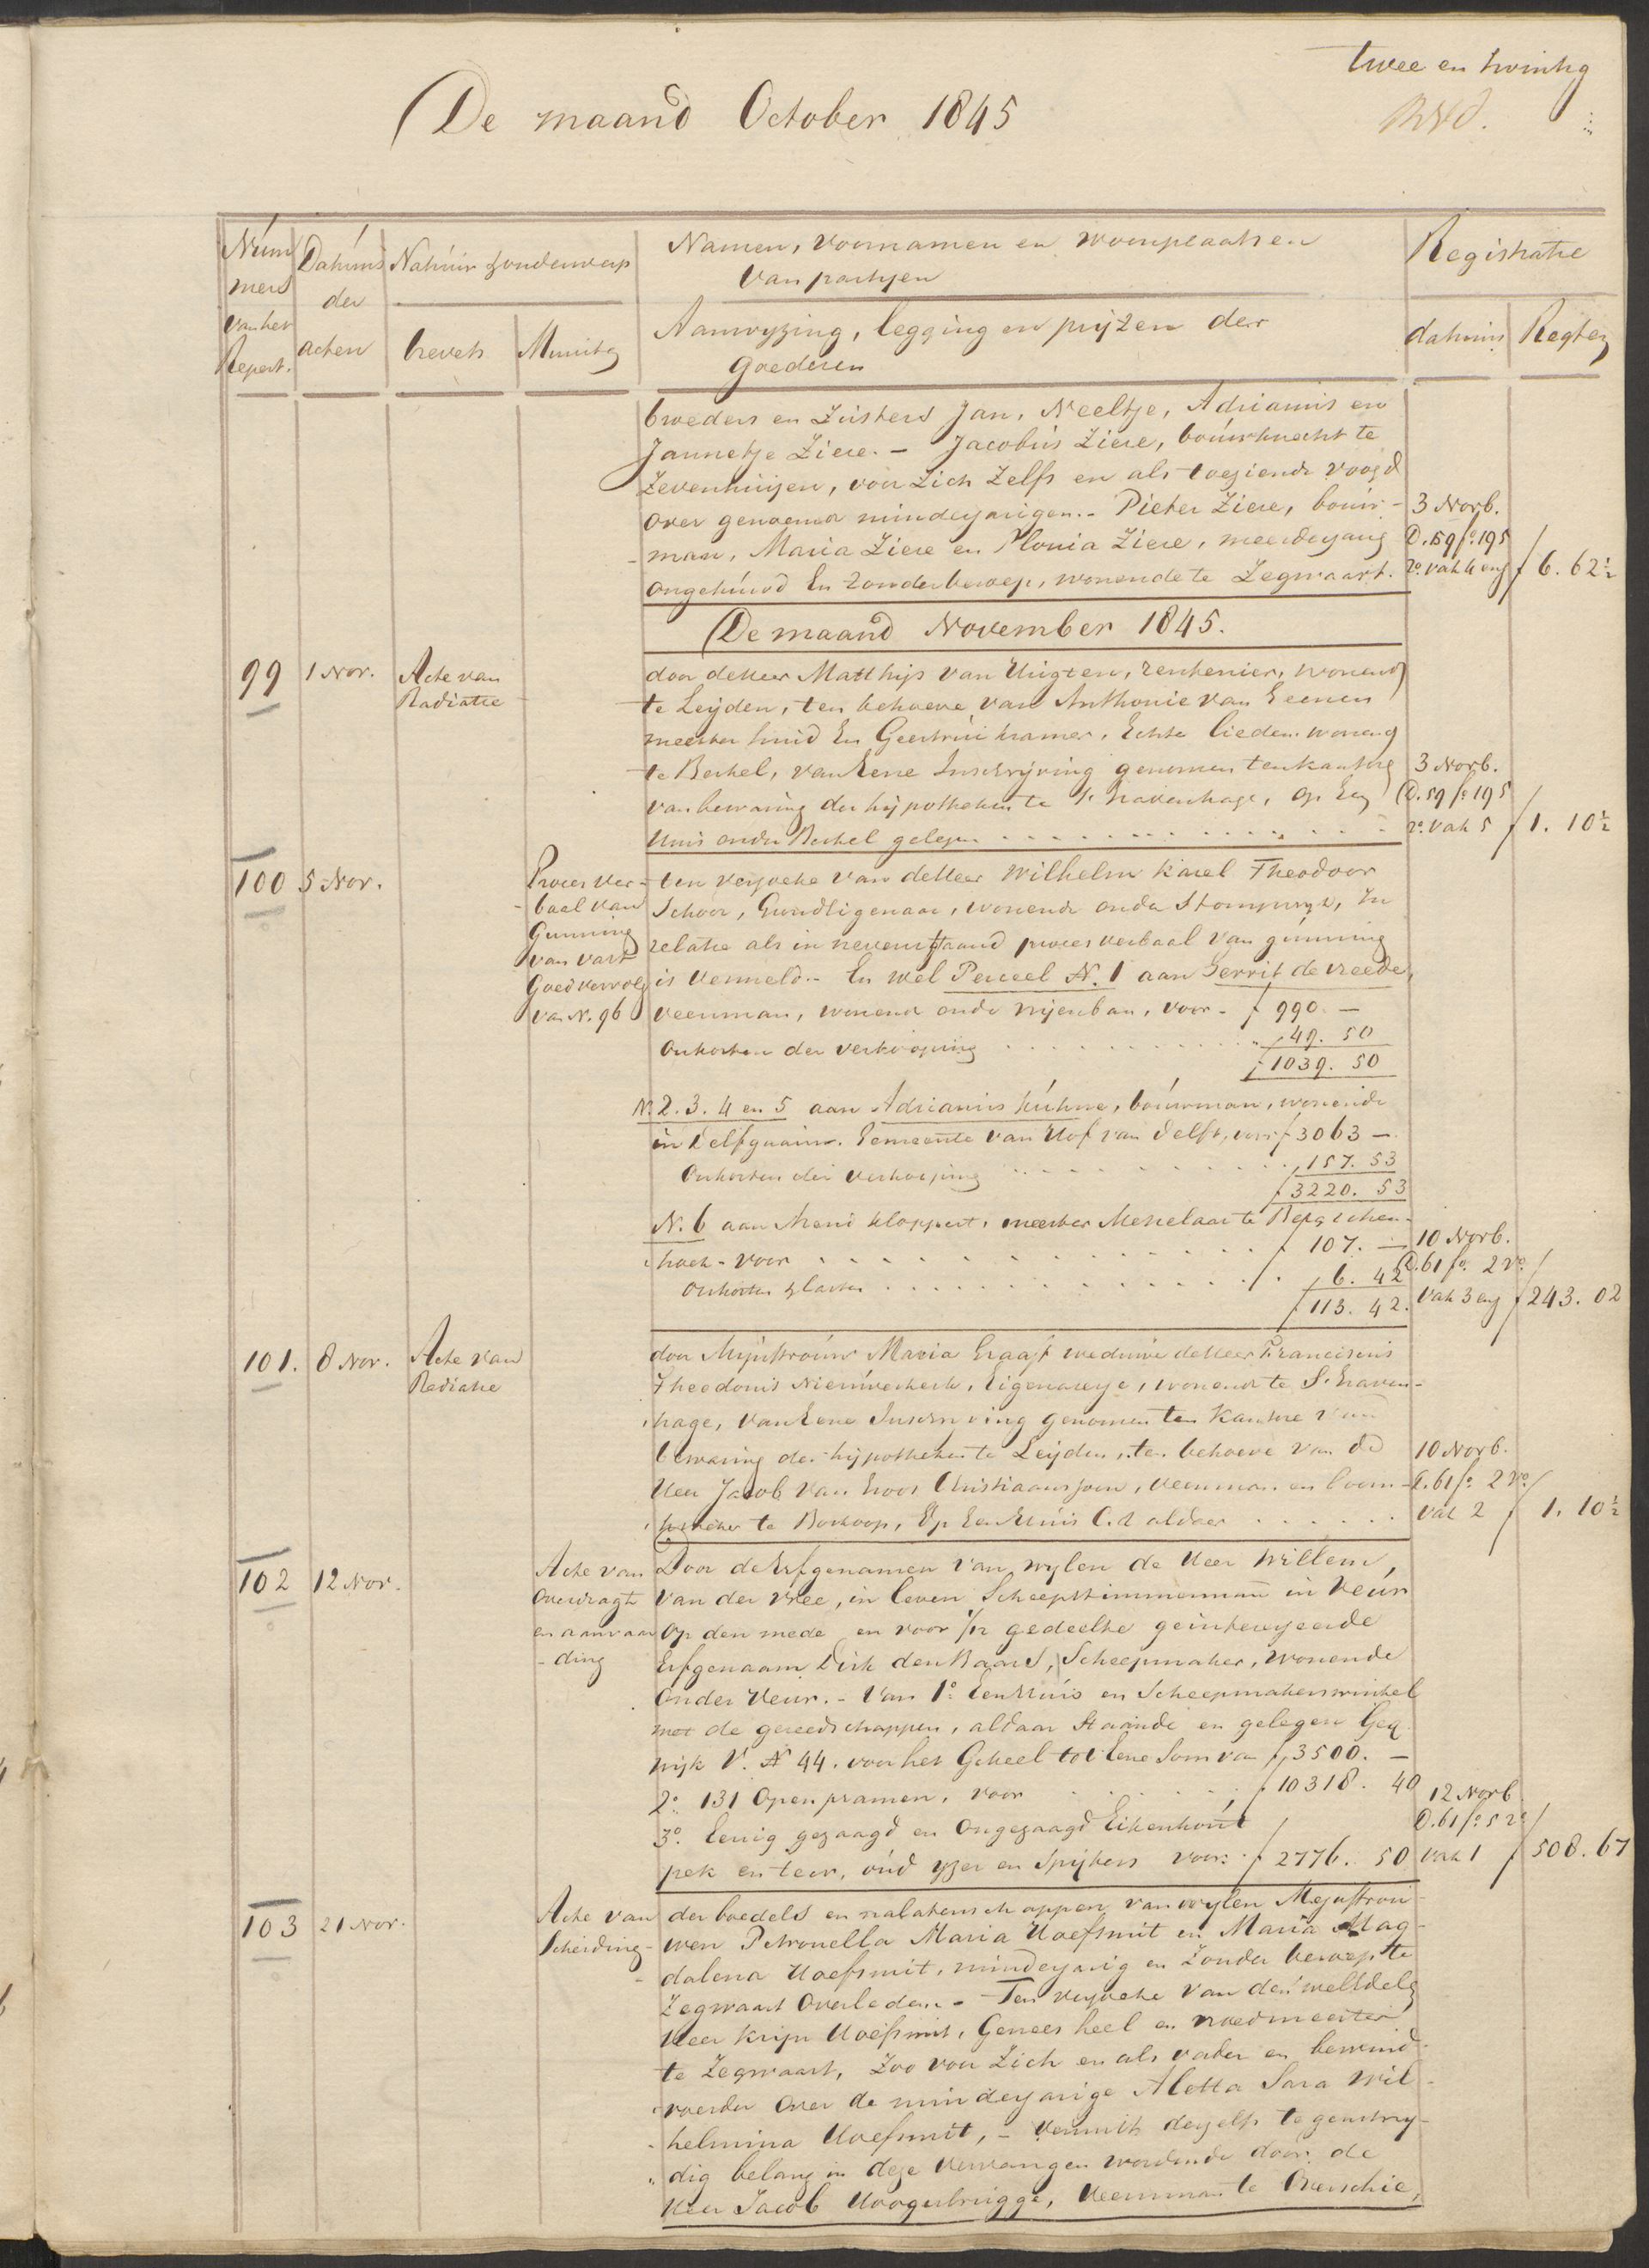 twee en twintig
De maand October 1845
Num
mers
van het
Repert.
Datums
der
acten
Natuur & onderwerp
brevets
Minuten
Namen, voornamen en woonplaatsen
van partijen
Aanwyzing, legging en prijzen der
goederen
Registratie
datums
Regten
broeders en Zusters Jan, Neeltje, Adrianus en
Jannetje Ziere. - Jacobus Ziere, bouwknecht te
Zevenhuijen, voor Zich Zelfs en als toeziende voogd
over genoemde minderjarigen. - Pieter Ziere, bouw-
man, Maria Ziere en Plonia Ziere, meerderjarig
ongehuwd En Zonder beroep, wonende te Zegwaart.
3 Novb.
D. 59 fo. 195
ro. vak 4 en
f 6. 62½
De maand November 1845.
99
1 Nov.
Acte van
Radiatie
door de Heer Matthijs van
rentenier, wonend
te Leijden, ten behoeve van Anthonie van Eenen
meester smid En Geertrui Kramer, Echte lieden wonend
te Berkel, van Eene Inschrijving genomen ten kantore
van bewaring der hypotheken te 's Gravenhage, op Een
Huis onder Berkel gelegen
3 Novb.
D. 59 fo 195
ro. vak 5
f 1. 10½
100
5 Nov.
Proces ver-
baal van
Gunning
van vast
Goed vervolg
van N. 96
ten verzoeke van de Heer Wilhelm Karel Theodoor
Schoor, Grondeigenaar, wonende onder Stompwyk, In
relatie als in nevenstaand proces verbaal van gunning
is vermeld. - En wel Perceel N. 1 aan Gerrit de Vreede,
veenman, wonend onder
voor - f 990. -
Onkosten der verkooping
49. 50
f 1039. 50
N. 2. 3. 4 en 5 aan Adrianus Kuhne, bouwman, wonende
in Delfgaauw. Gemeente van Hof van Delft, voor f 3063 -
Onkosten der verkooping
157. 53
f 3220. 53
N. 6 aan Arend Kloppert, meester Metselaar te Bergschen-
hoek - voor
f 107. -
Onkosten & lasten
6. 42
f 113. 42.
10 Novb.
D. 61 fo. 2 vo.
vak 3 en
f 243. 02
101.
8 Nov.
Acte van
Radiatie
door Mejufvrouw Maria Graaf weduwe de Heer Franciscus
Theodorus Nieuwerkerk, Eigenaresse, wonend te S. Graven-
hage, van Eene Inschryving genomen ten Kantore van
bewaring der hypotheken te Leijden, ten behoeve van de
Heer Jacob van
Christiaanszoon, veenman en boom-
kweker te Boskoop, Op Een Huis C.a aldaar
10 Novb.
D. 61 fo 2 ro.
vak 2
f 1. 10½
102
12 Nov.
Acte van
Overdragt
en aanvaar
- ding
Door de Erfgenamen van wylen de Heer Willem
van der Vlee, in leven Scheepstimmerman in Veur
Op den mede en voor 1/12 gedeelte geinteresseerde
Erfgenaam Dirk den Baars, Scheepmaker, wonende
onder Veur. - Van 1o. Een Huis en Scheepmakerswinkel
met de gereedschappen, aldaar Staande en gelegen Geq.
wijk V. N 44. voor het Geheel tot Eene Som van f 3500. -
2o. 131 Open pramen, voor
f 10318. 40
3o. Eenig gezaagd en Ongezaagd Eikenhout
pek en teer, oud yzer en Spijkers voor: f 2776. 50
12 Novb
D. 61 fo 5 ro
vak 1
f 508. 67
103
21 Nov.
Acte van
Scheiding
der boedels en nalatenschappen van wylen Mejufvrou-
wen Petronella Maria Hoefsmit en Maria Mag-
dalena Hoefsmit, minderjarig en Zonder beroep te
Zegwaart Overleden. - Ten verzoeke van den welEdele
Heer Krijn Hoefsmit, Genees heel en vroedmeester
te Zegwaart, Zoo voor Zich en als vader en bewind-
voerder Over de minderjarige Aletta Sara Wil-
helmina Hoefsmit, - vermits deszelfs tegenstry-
dig belang in deze vervangen wordende door de
Heer Jacob Hoogerbrugge, Veenman te Overschie,